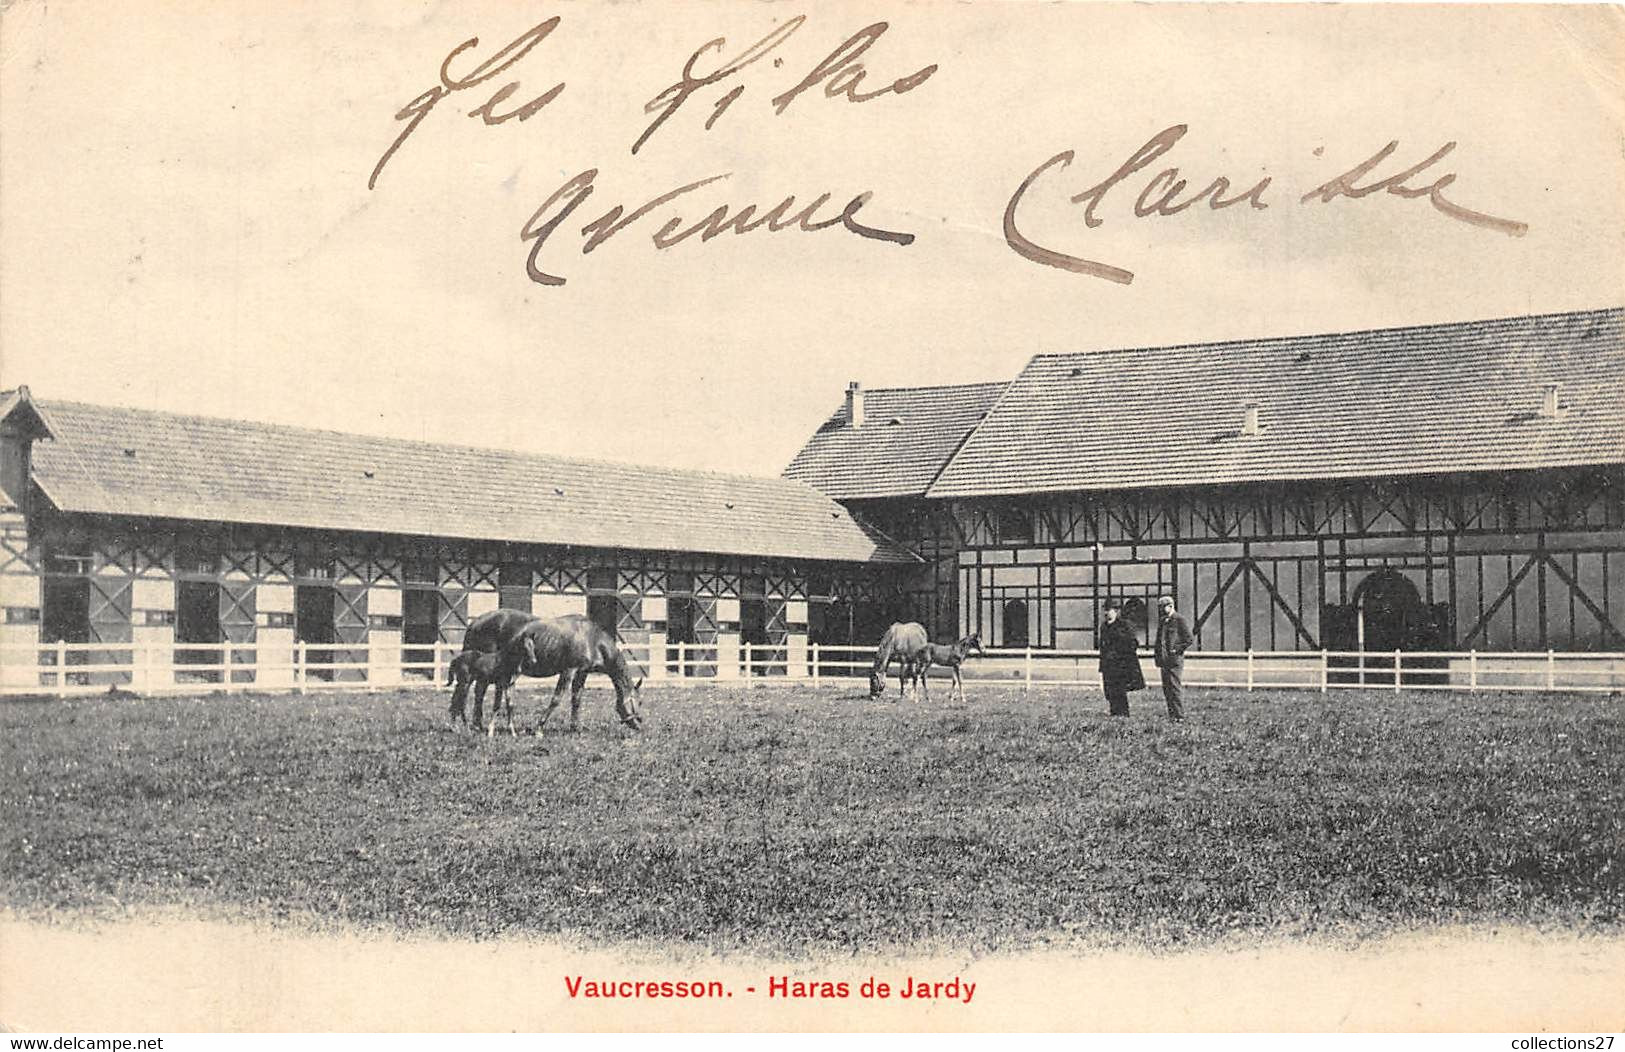 Les Lilas
Avenue Clarisse
Vaucresson. - Haras de Jardy
www.delcampe.net
collections27